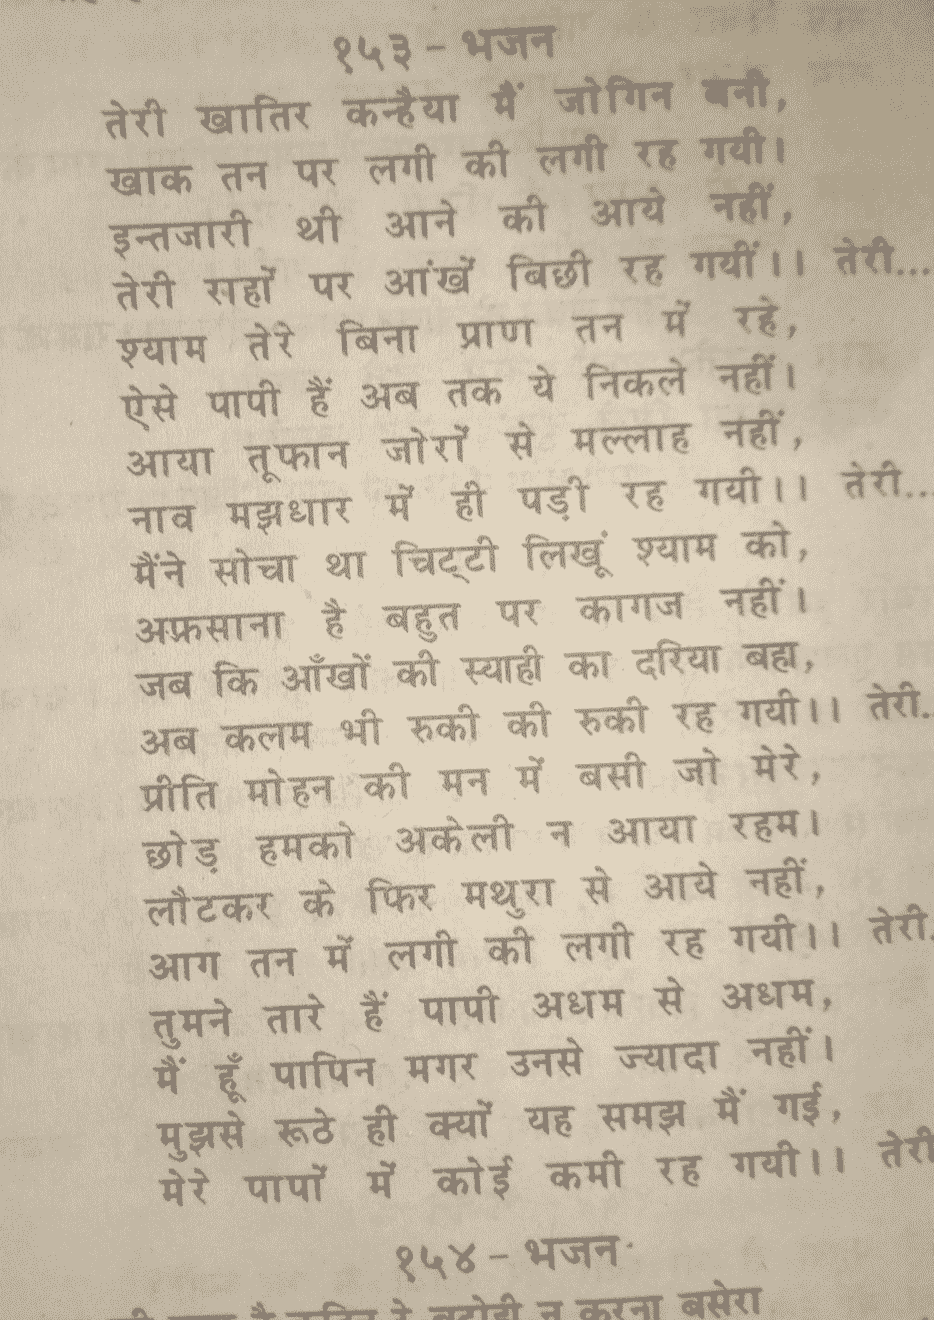 १५३ - भजन
तेरी खातिर कन्हैया मैं जोगिन बनी,
खाक तन पर लगी की लगी रह गयी।
इन्तजारी थी आने की आये नहीं,
तेरी सहों पर आंखें बिछी रह गयीं।। तेरी...
श्याम तेरे बिना प्राण तन में रहे,
ऐसे पापी हैं अब तक ये निकले नहीं।
आया तूफान जोरों से मल्लाह नहीं,
नाव मझधार में ही पड़ी रह गयी।। तेरी...
मैंने सोचा था चिट्टी लिखूं श्याम को,
अफ्रसाना है बहुत पर कागज नहीं।
जब कि आँखों की स्याही का दरिया बहा,
अब कलम भी रुकी की रुकी रह गयी।। तेरी..
प्रीति मोहन की मन में बसी जो मेरे,
छोड़ हमको अकेली न आया रहम।
लौटकर के फिर मथुरा से आये नहीं,
आग तन में लगी की लगी रह गयी।। तेरी.
तुमने तारे हैं पापी अधम से अधम,
मैं हूँ पापिन मगर उनसे ज्यादा नहीं।
मुझसे रूठे ही क्यों यह समझ मैं गई,
मेरे पापों में कोई कमी रह गयी।। तेरी
१५४ - भजन
न करना बसेरा